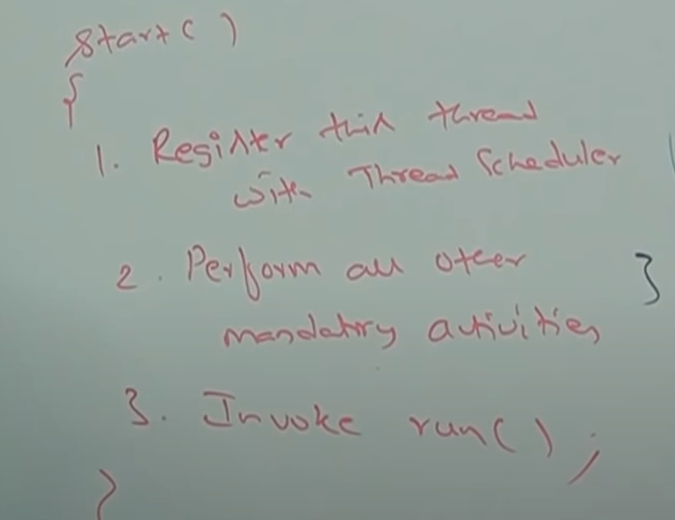 start( )
{
1. Register this thread
with Thread Scheduler
2. Perform all other
mandatory activities
}
3. Invoke run( );
}